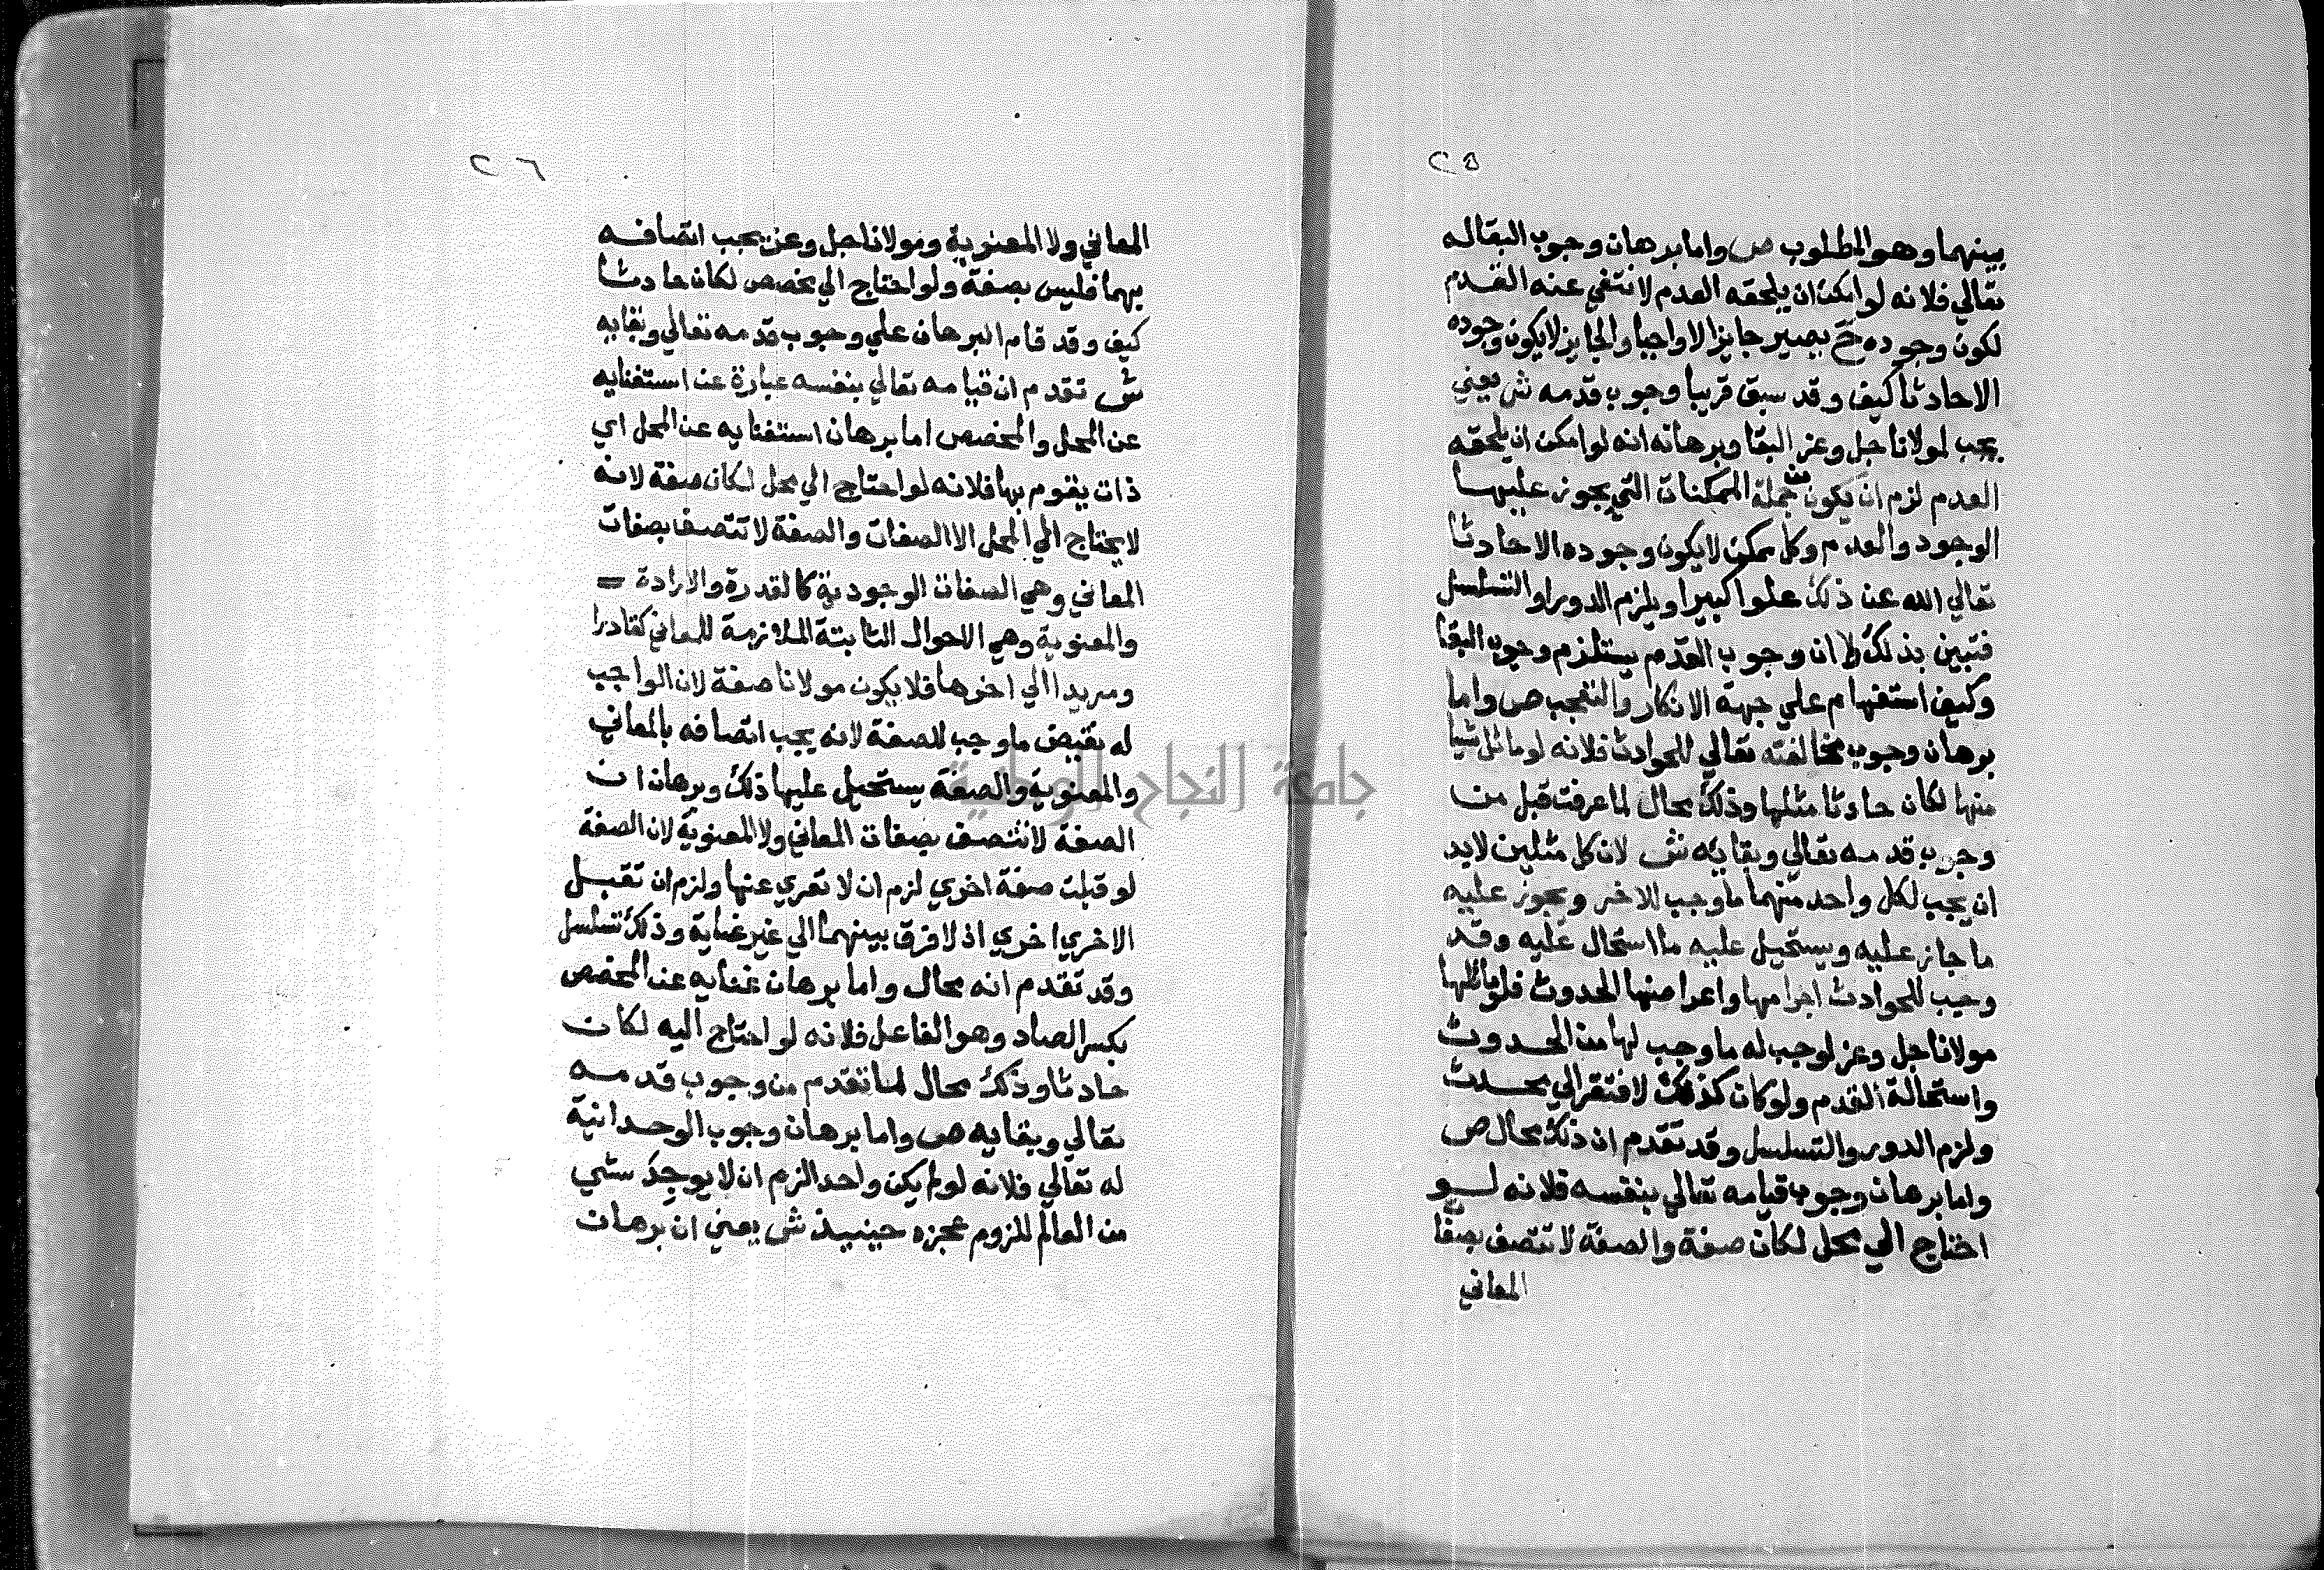 ٢٥
بينهما وهو المطلوب ص واما برهان وجوب البقا له
تعالي فلانه لو امكن ان يلحقه العدم لانتفي عنه القدم
لكون وجوده ح يصير جايزا لا واجبا والجايز لا يكون وجوده
الا حادثا كيف وقد سبق قريبا وجوب قدمه ش يعني
يجب لمولانا جل وعز البقا وبرهانه انه لو امكن ان يلحقه
العدم لزم ان يكون من جملة الممكنات التي يجوز عليها
الوجود والعدم وكل ممكن لا يكون وجوده الا حادثا
تعالي الله عن ذلك علوا كبيرا ويلزم الدور او التسلسل
فتبين بذلك ان وجوب القدم يستلزم وجوب البقا
وكيف استفهام علي جهة الانكار والتعجب ص واما
برهان وجوب مخالفته تعالي للحوادث فلانه لو ماثل شيا
منها لكان حادثا مثلها وذلك محال لما عرفت قبل من
وجوب قدمه تعالي وبقائه ش لان كل مثلين لابد
ان يجب لكل واحد منهما ما وجب للاخر ويجوز عليه
ما جاز عليه ويستحيل عليه ما استحال عليه وقد
وجب للحوادث اجرامها واعراضها الحدوث فلو ماثلها
مولانا جل وعز لوجب له ما وجب لها من الحدوث
واستحالة القدم ولو كان كذلك لافتقر الي محدث
ولزم الدور والتسلسل وقد تقدم ان ذلك محال ص
واما برهان وجوب قيامه تعالي بنفسه فلانه لو
احتاج الي محل لكان صفة والصفة لا تتصف بصفا
المعاني
٢٦
المعاني ولا المعنوية ومولانا جل وعز يجب اتصافه
بهما فليس بصفة ولو احتاج الي مخصص لكان حادثا
كيف وقد قام البرهان علي وجوب قدمه تعالي وبقايه
ش تقدم ان قيامه تعالي بنفسه عبارة عن استغنايه
عن المحل والمخصص اما برهان استغنايه عن المحل اي
ذات يقوم بها فلانه لو احتاج الي محل لكان صفة لانه
لا يحتاج الي المحل الا الصفات والصفة لا تتصف بصفات
المعاني وهي الصفات الوجودية كالقدرة والارادة
والمعنوية وهي الاحوال الثابتة الملازمة للمعاني كقادرا
ومريدا الي اخرها فلا يكون مولانا صفة لان الواجب
له نقيض ما وجب للصفة لانه يجب اتصافه بالمعاني
والمعنوية والصفة يستحيل عليها ذلك وبرهان ان
الصفة لا تتصف بصفات المعاني ولا المعنوية لان الصفة
لو قبلت صفة اخري لزم ان لا تعري عنها ولزم ان تقبل
الاخري اخري اذ لا فرق بينهما الي غير غناية وذلك تسلسل
وقد تقدم انه محال واما برهان غنايه عن المخصص
بكسر الصاد وهو الفاعل فلانه لو احتاج اليه لكان
حادثا وذلك محال لما تقدم من وجوب قدمه
تعالي وبقايه ص واما برهان وجوب الوحدانية
له تعالي فلانه لو لم يكن واحد الزم ان لا يوجد شي
من العالم للزوم عجزه حينيذ ش يعني ان برهان
جامعة النجاح الوطنية